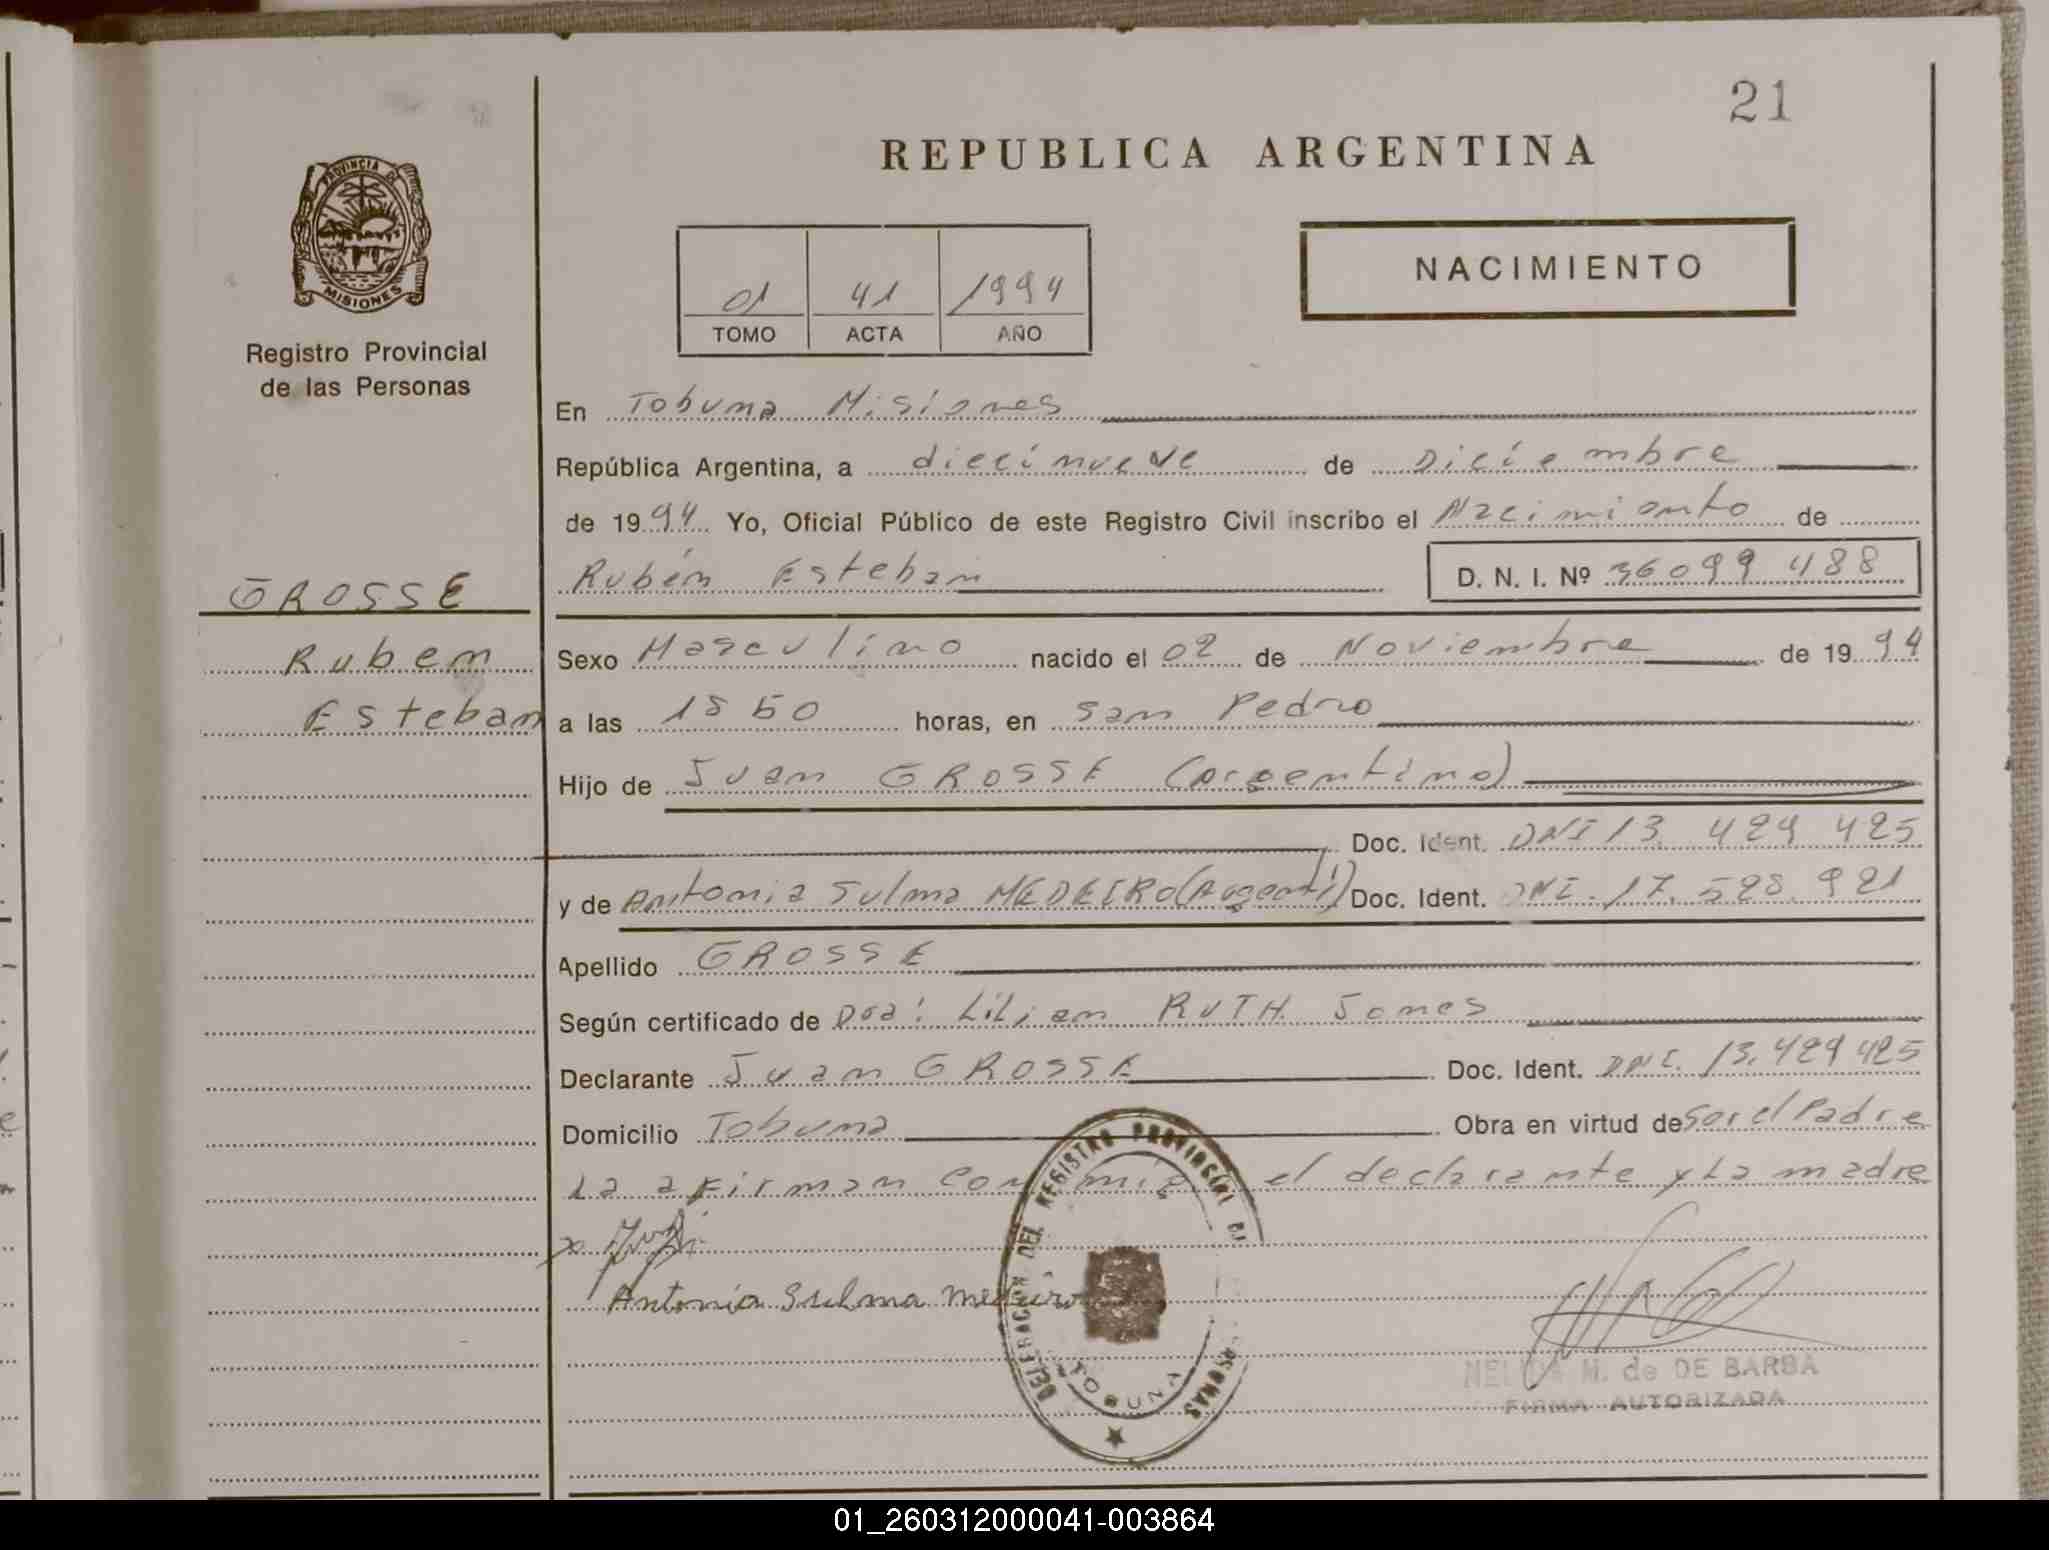 21
REPUBLICA ARGENTINA
PROVINCIA DE
MISIONES
Registro Provincial
de las Personas
01 41 1994
TOMO ACTA AÑO
NACIMIENTO
En Tobuna Misiones
República Argentina, a diecinueve de Diciembre
de 1994 Yo, Oficial Público de este Registro Civil inscribo el Nacimiento de
Rubén Esteban D. N. I. Nº 36099 488
GROSSE
Ruben
Esteban
Sexo Masculino nacido el 02 de Noviembre de 1994
a las horas, en San Pedro
Hijo de Juan GROSSE (argentino)
Doc. Ident. DNI 13. 429 425
y de Antonia Sulma MEDEIRO (Argenti) Doc. Ident. DNI. 17. 528. 921
Apellido GROSSE
Según certificado de Dra: Lilian RUTH Jones
Declarante Juan GROSSE Doc. Ident. DNI. 13.429 425
Domicilio Tobuna Obra en virtud de Ser el Padre
La a Firman con mig el declarante y La madre
Antonia Sulma Medeiro
DELEGACION DEL REGISTRO PROVINCIAL DE
TOBUNA
M. de DE BARBA
FIRMA AUTORIZADA
01_260312000041-003864